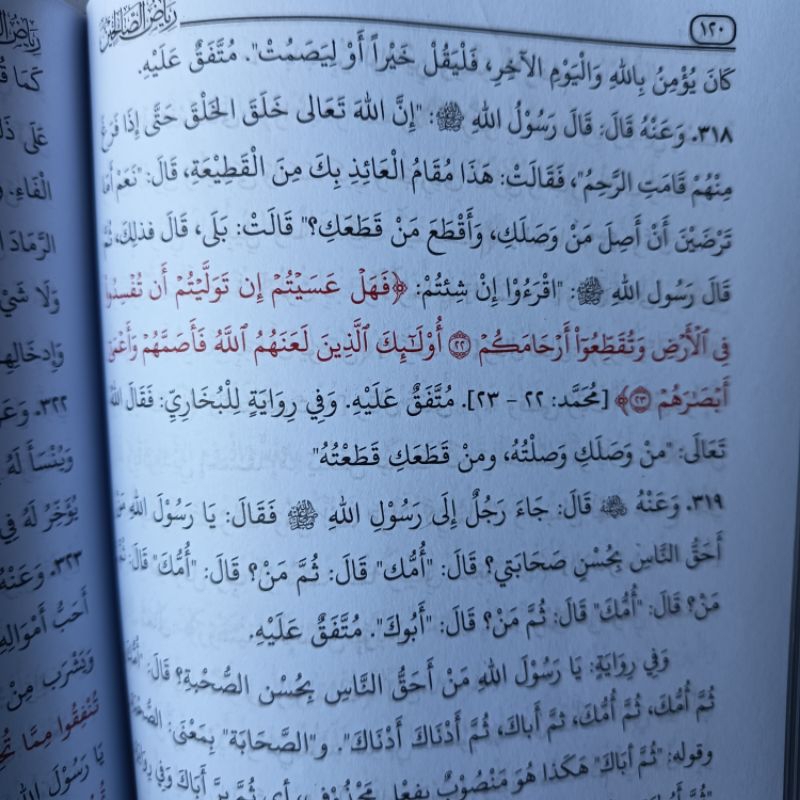 ١٢٠ رِيَاضُ الصَّالِحِيْنَ
كَانَ يُؤْمِنُ بِاللهِ وَالْيَوْمِ الآخِرِ، فَلْيَقُلْ خَيْراً أَوْ لِيَصْمُتْ". مُتَّفَقٌ عَلَيْهِ.
٣١٨. وَعَنْهُ قَالَ: قَالَ رَسُوْلُ اللهِ ﷺ: "إِنَّ اللهَ تَعَالى خَلَقَ الخَلْقَ حَتَّى إِذَا فَرَغَ
مِنْهُمْ قَامَتِ الرَّحِمُ"، فَقَالَتْ: هَذَا مُقَامُ الْعَائِذِ بِكَ مِنَ الْقَطِيْعَةِ، قَالَ: "نَعَمْ أَمَا
تَرْضَيْنَ أَنْ أَصِلَ مَنْ وَصَلَكِ، وَأَقْطَعَ مَنْ قَطَعَكِ؟" قَالَتْ: بَلَى، قَالَ فذلِكِ، ثُمَّ
قَالَ رَسُول اللهِ ﷺ: "اقْرَءُوْا إِنْ شِئتُمْ: ﴿فَهَلْ عَسَيْتُمْ إِن تَوَلَّيْتُمْ أَن تُفْسِدُوا
فِي ٱلْأَرْضِ وَتُقَطِّعُوٓا۟ أَرْحَامَكُمْ ٢٢ أُو۟لَٰٓئِكَ ٱلَّذِينَ لَعَنَهُمُ ٱللَّهُ فَأَصَمَّهُمْ وَأَعْمَىٰٓ
أَبْصَٰرَهُمْ ٢٣﴾ [مُحَمَّد: ٢٢ – ٢٣]. مُتَّفَقٌ عَلَيْهِ. وَفي رِوَايَةٍ لِلْبُخَارِيِّ: فَقَالَ اللهُ
تَعَالَى: "منْ وَصَلَكِ وَصلْتُهُ، ومنْ قَطَعَكِ قَطَعْتُهُ"
٣١٩. وَعَنْهُ ﷺ قَالَ: جَاءَ رَجُلٌ إِلَى رَسُوْلِ اللهِ ﷺ فَقَالَ: يَا رَسُوْلَ اللهِ مَنْ
أَحَقُّ النَّاسِ بِحُسْنِ صَحَابَتي؟ قَالَ: "أُمُّك" قَالَ: ثُمَّ مَنْ؟ قَالَ: "أُمُّكَ" قَالَ: ثُمَّ
مَنْ؟ قَالَ: "أُمُّكَ" قَالَ: ثُمَّ مَنْ؟ قَالَ: "أَبُوكَ". مُتَّفَقٌ عَلَيْهِ.
وَفي رِوَايَةٍ: يَا رَسُوْلَ اللهِ مَنْ أَحَقُّ النَّاسِ بِحُسْنِ الصُّحْبةِ؟ قَالَ: "أُمُّكَ
ثُمَّ أُمُّكَ، ثُمَّ أُمُّكَ، ثمَّ أَباكَ، ثُمَّ أَدْنَاكَ أَدْنَاكَ". و"الصَّحَابَة" بِمَعْنَى: الصُّحْبَةِ
وقوله: "ثُمَّ أَبَاكَ" هَكذا هُوَ مَنْصُوْبٌ بِفِعْلٍ مَحْذُوْفٍ، أي ثُمَّ برَّ أَبَاكَ وَفي رِوَايَةٍ
كَمَا
عَلَى
الْفَاءِ.
الرَّمَادَ
وَلَا شَيْ
وَإِدخَالِهِ
٣٢٢. وَعَ
وَيُنْسَأَ لَهُ
يُؤَخَّرُ لَهُ فِي
٣٢٣. وَعَنْهُ
أَحَبُّ أَمْوَالِهِ
وَيَشْرَب مِنْ
تُنْفِقُوا مِمَّا
يَا رَسُوْلَ اللهِ